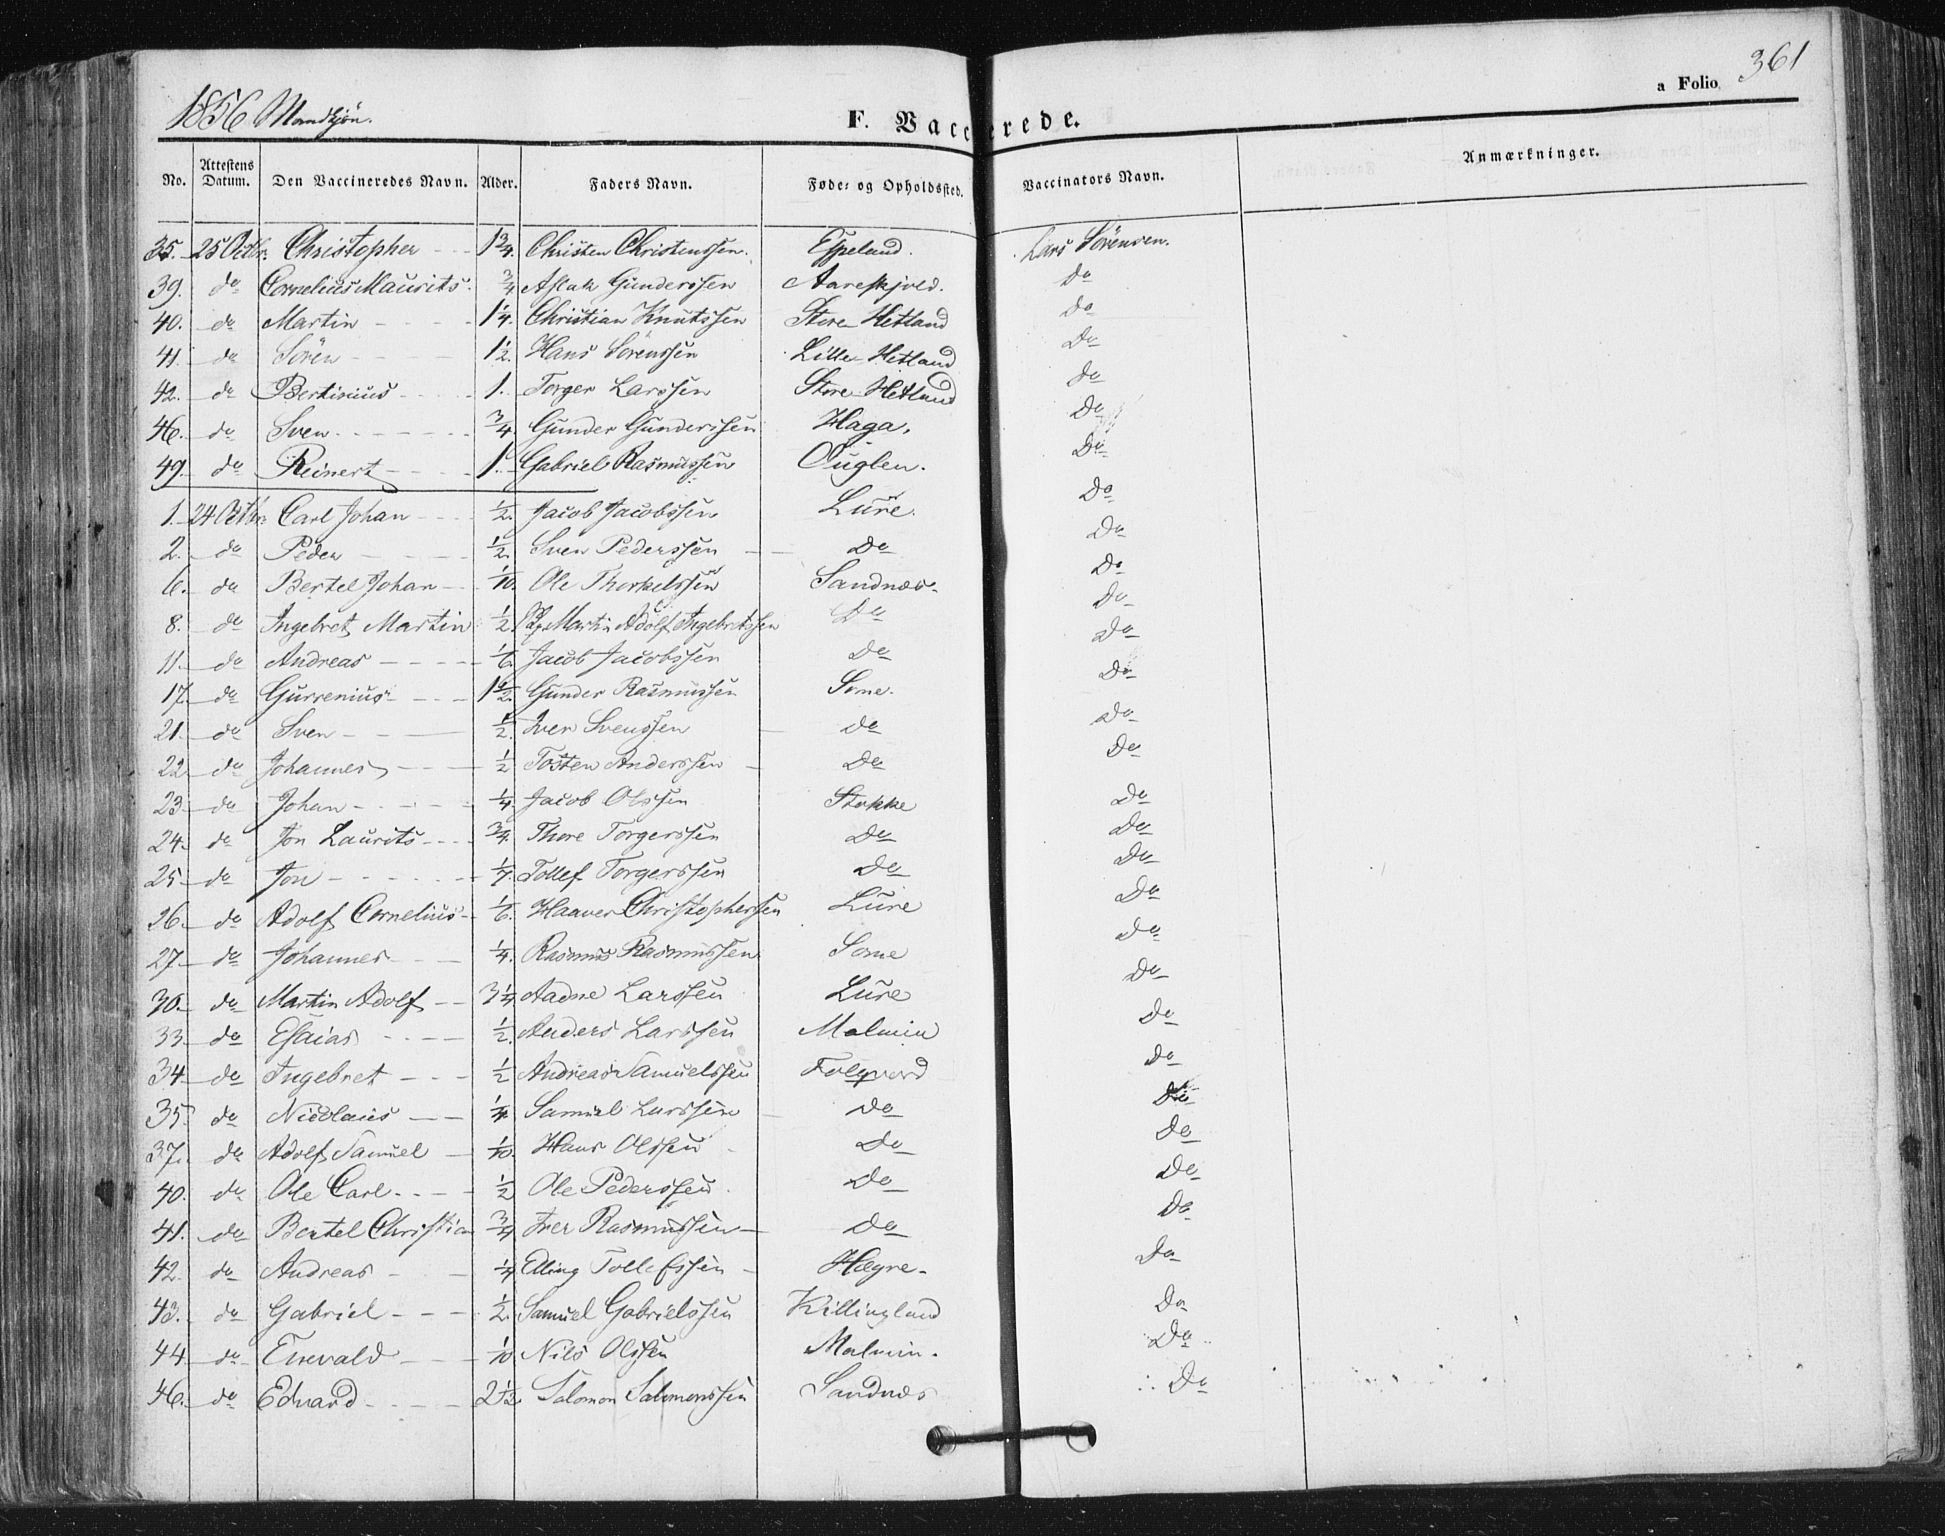 361
a Folio
1856 Mandkjön.
F. Vaccinerede.
No. Attestens Datum. Den Vaccineredes Navn. Alder. Faders Navn. Føde- og Opholdssted. Vaccinators Navn. Anmærkninger.
35. 25 Octbr. Christopher 1 3/4. Christen Christenssen. Espeland. Lars Sörensen.
39. do Cornelius Maurits. 3/4 Aslak Gunderssen Aareskjold. Do
40. do Martin 1 1/4. Christian Knutssen Store Hetland Do
41. do Sören 1 1/2. Hans Sörenssen Lille Hetland Do
42. do Bertinius 1. Torger Larssen Store Hetland Do
46. do Sven 3/4. Gunder Gunderssen Haga. Do
49. do Reinert 1. Gabriel Rasmussen Ouglen. Do
1. 24 Octbr. Carl Johan 1/2. Jacob Jacobssen Lure. Do
2. do Peder 1/2. Sven Pederssen Do Do
6. do Bertel Johan 1/10. Ole Thorkelssen Sandnæs. Do
8. do Ingebret Martin 1/2. Martin Adolf Ingebretssen Do Do
11. do Andreas 1/6. Jacob Jacobssen Do Do
17. do Gurrenius 1 1/2. Gunder Rasmussen Some. Do
21. do Sven 1/2. Iver Svenssen do Do
22. do Johannes 1/2 Tosten Anderssen Do Do
23. do Johan 1/4. Jacob Olssen Stokke Do
24. do Jon Laurits 3/4. Thore Torgerssen Do Do
25. do Jon 1/7. Tollef Torgerssen Do Do
26. do Adolf Cornelius 1/6. Haaver Christophersen Lure Do
27. do Johannes 1/4. Rasmus Rasmussen Some Do
30. do Martin Adolf 3 1/4 Aadne Larssen Lure Do
33. do Esaias 1/2. Anders Larssen Malmin Do
34. do Ingebret 1/2 Andreas Samuelssen Folqvord Do
35. do Nicolaus 1/4. Samuel Larssen Do Do
37. do Adolf Samuel 1/10. Hans Olssen Do Do
40. do Ole Carl 1/2 Ole Pederssen Do Do
41. do Bertel Christian 3/4 Iver Rasmussen Do Do
42. do Andreas 1/4 Elling Tollefssen Høgre Do
43. do Gabriel 1/2. Samuel Gabrielssen Killingland Do
44. do Enevald 1/10 Nils Olssen Malmin. Do
46. do Edvard 2 1/2. Salomon Salomonssen Sandnæs Do